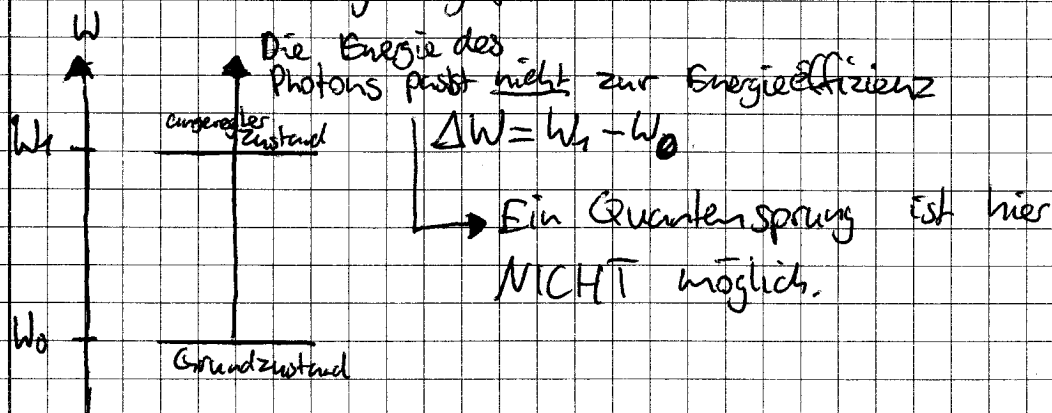 W
Die Energie des
Photons passt nicht zur Energieeffizienz
W₁
angeregter
Zustand
ΔW = W₁ - W₀
Ein Quantensprung ist hier
NICHT möglich.
W₀
Grundzustand